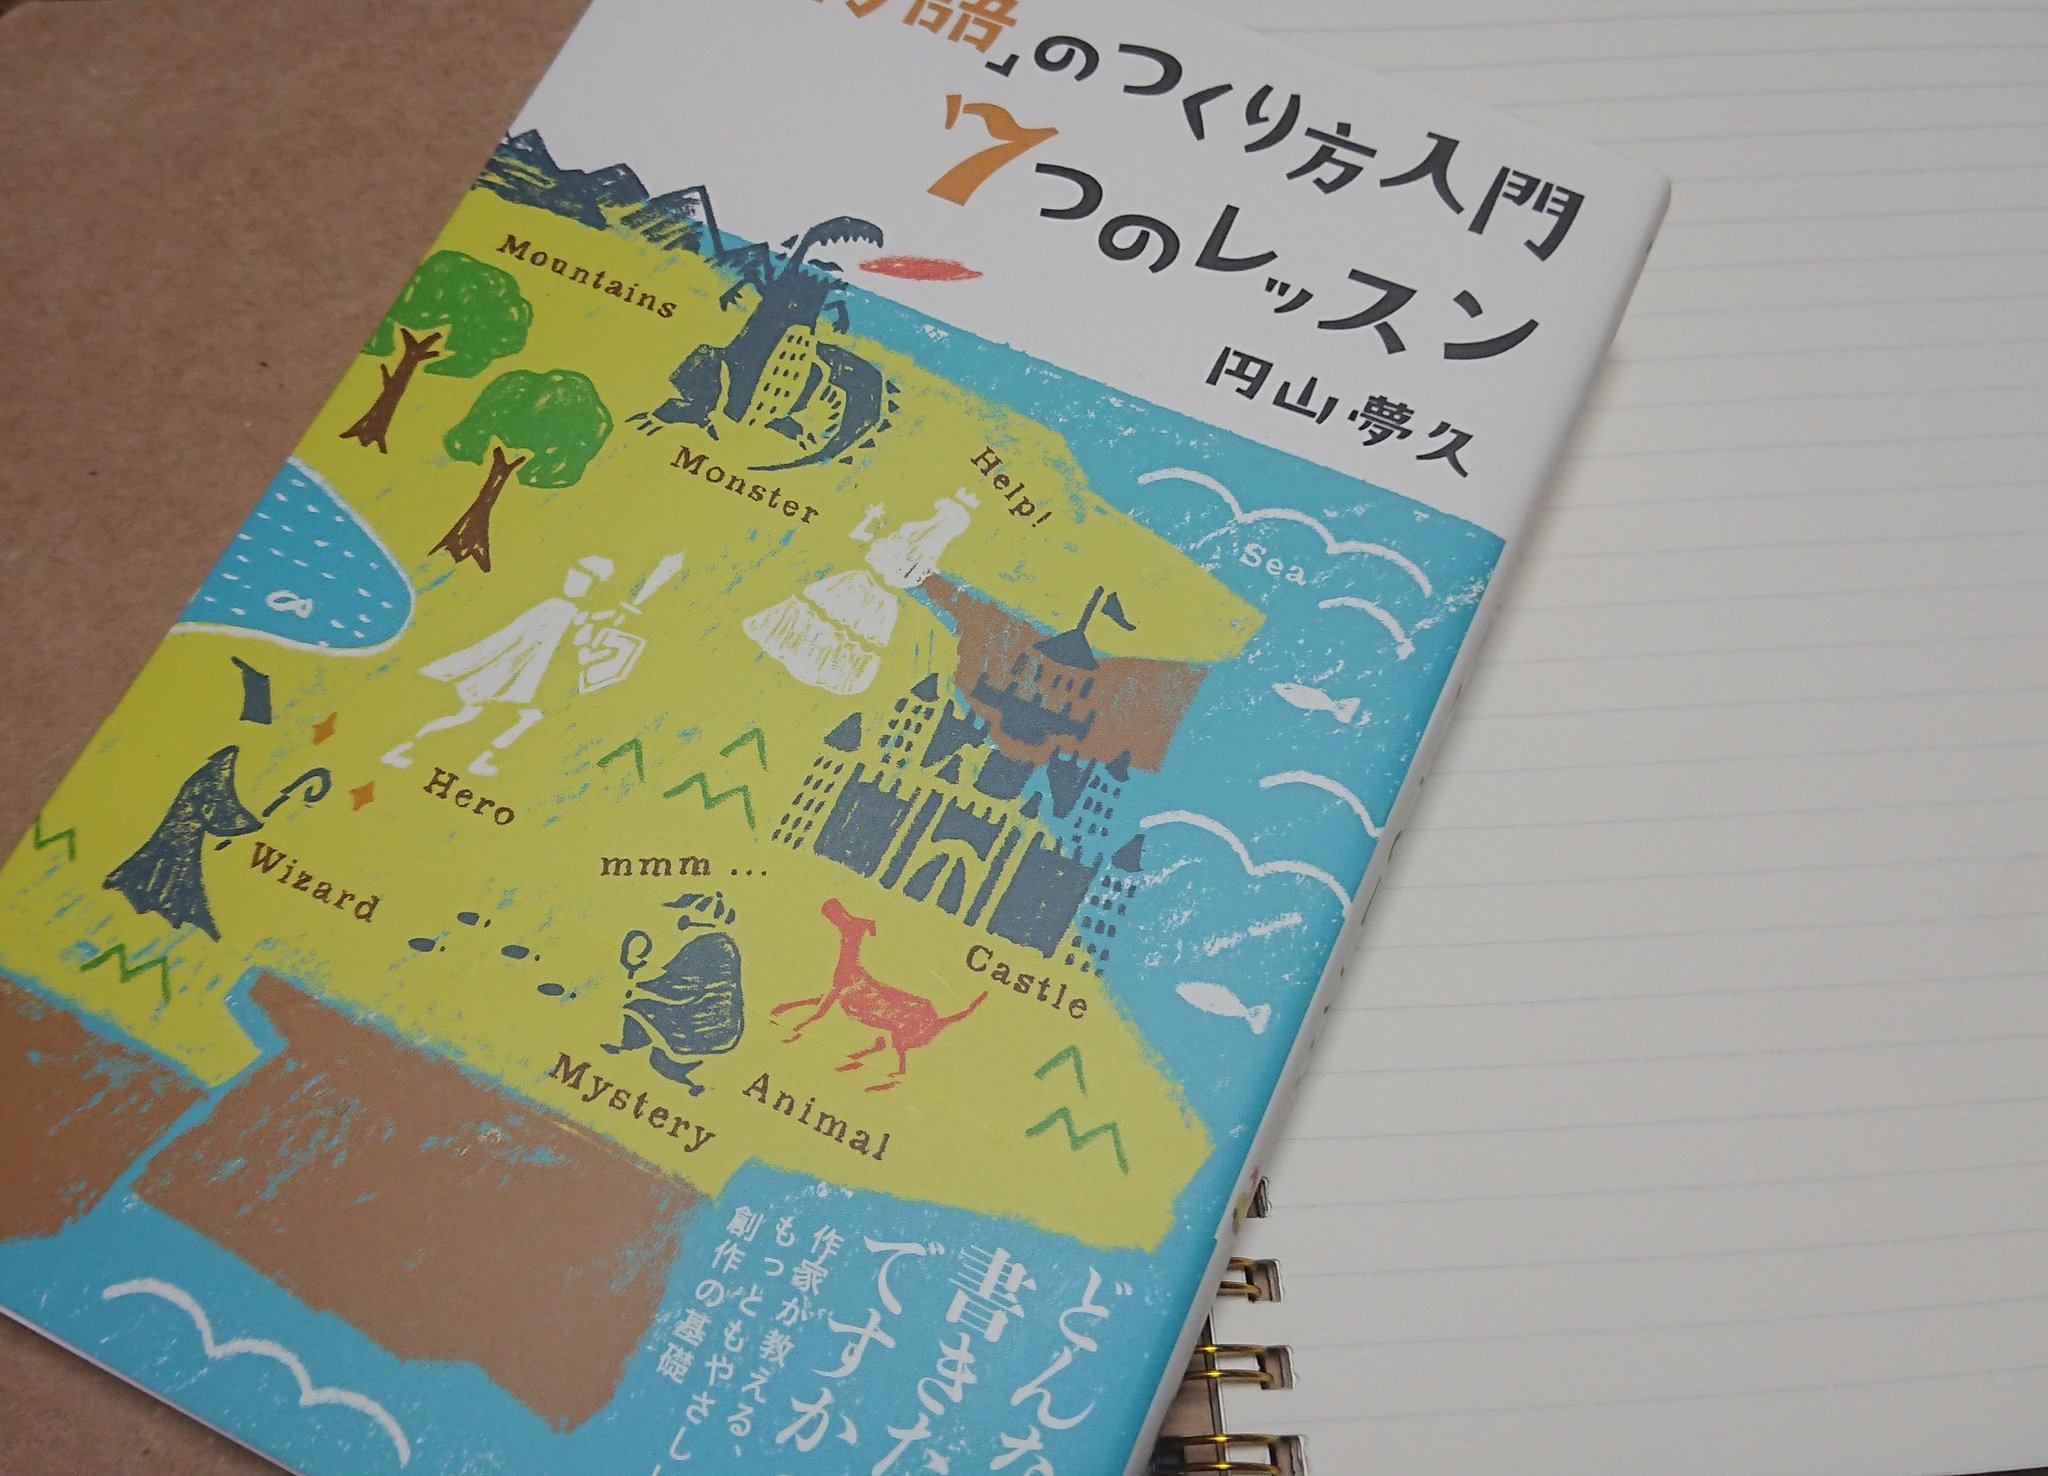 語」のつくり方入門
7つのレッスン
円山夢久
Mountains
Monster
Help!
Sea
Hero
Wizard
mmm ...
Castle
Mystery
Animal
どんな
書きた
ですか
作家が教える、
もっともやさし
創作の基礎